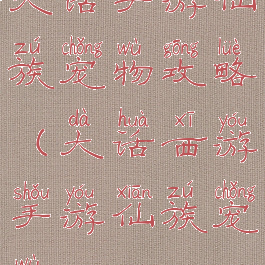 大话手游仙
zú chǒng wù gōng lüè
族宠物攻略
dà huà xī yóu
（大话西游
shǒu yóu xiān zú chǒng
手游仙族宠
wù